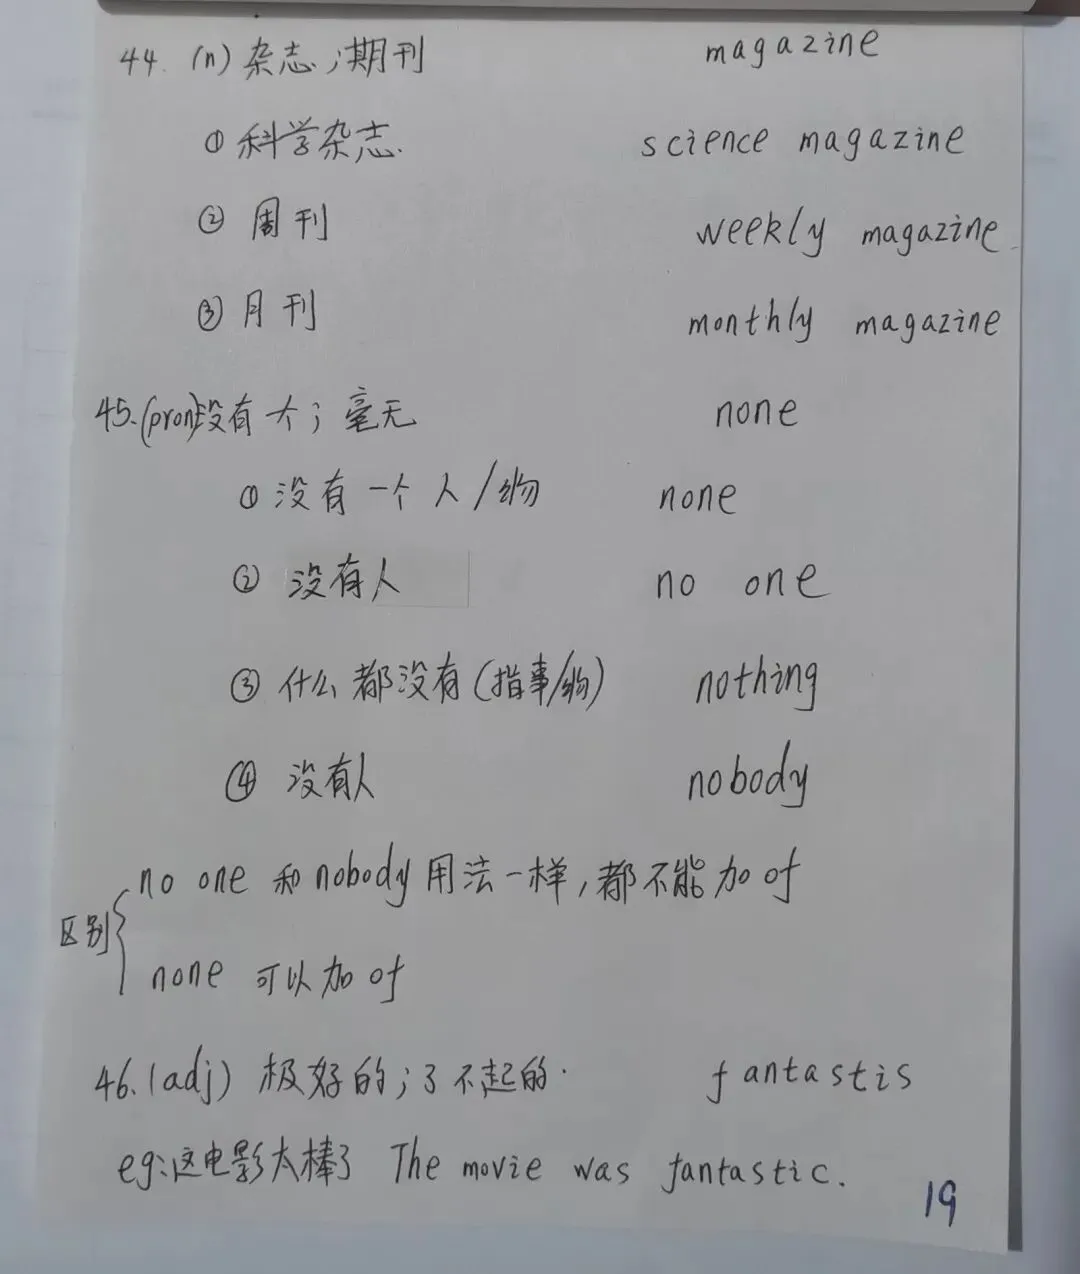 44. (n) 杂志；期刊 magazine
① 科学杂志. science magazine
② 周刊 weekly magazine
③ 月刊 monthly magazine
45.(pron)没有一个；毫无 none
① 没有一个人/物 none
② 没有人 no one
③ 什么都没有(指事/物) nothing
④ 没有人 nobody
no one 和 nobody 用法一样,都不能加 of
区别
none 可以加 of
46.(adj) 极好的；了不起的. fantastis
eg:这电影太棒了 The movie was fantastic.
19